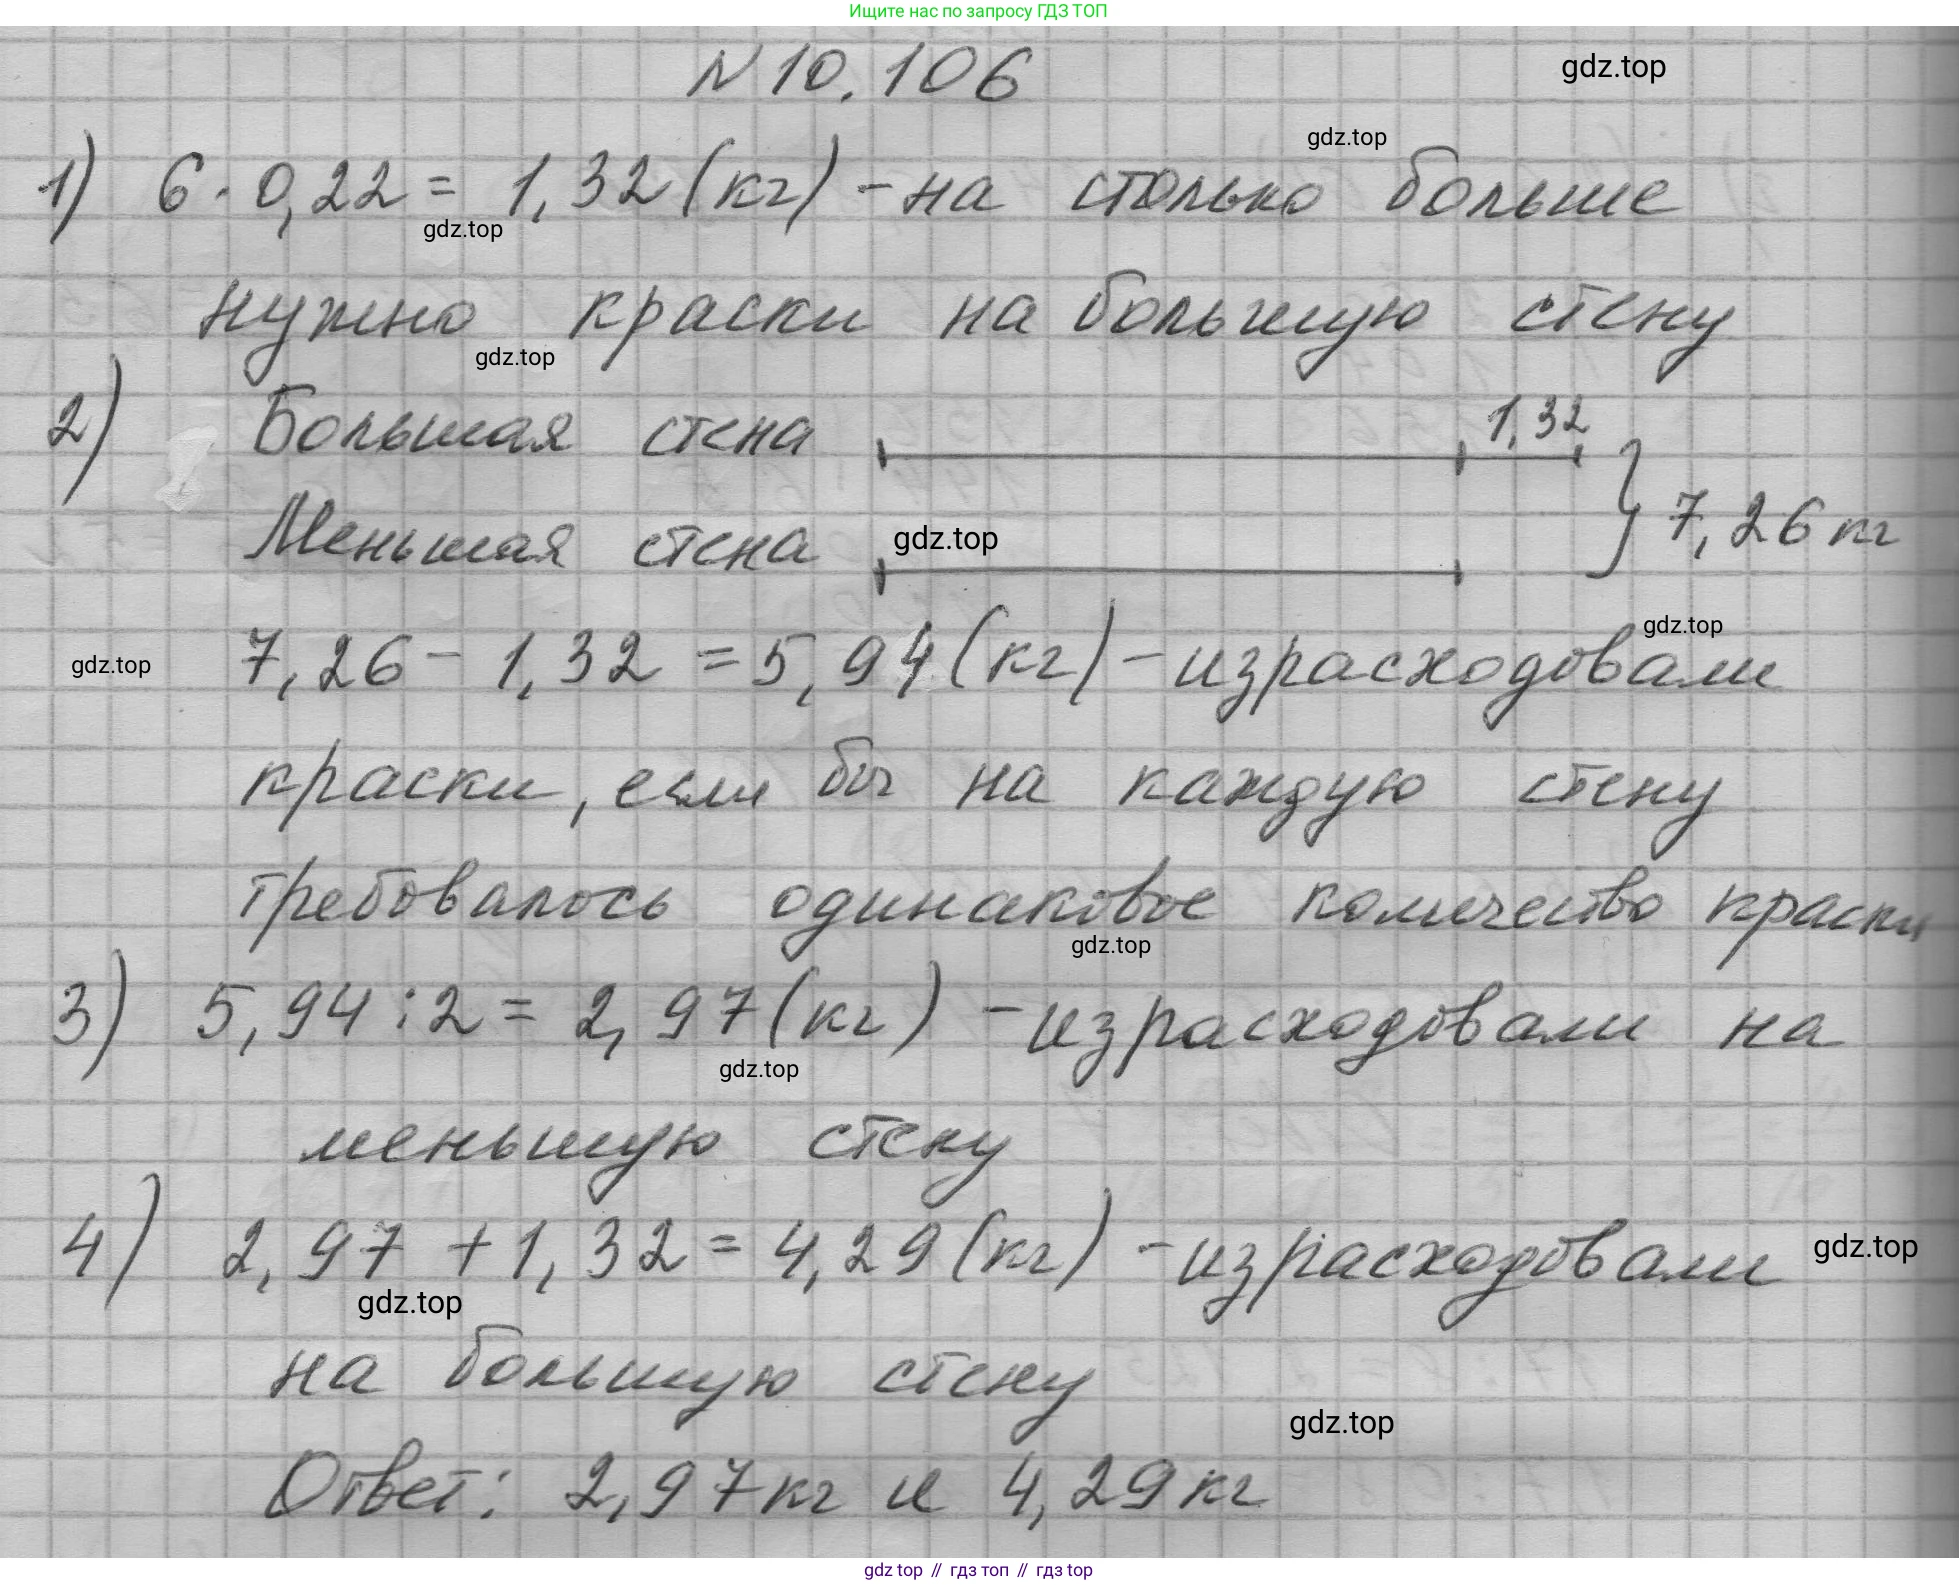 Ищите нас по запросу ГДЗ ТОП
N 10.106
gdz.top
gdz.top
1) 6 · 0,22 = 1,32 (кг) - на столько больше
gdz.top
нужно краски на большую стену
gdz.top
2) Большая стена 1,32
Меньшая стена gdz.top 7,26 кг
gdz.top
gdz.top 7,26 - 1,32 = 5,94 (кг) - израсходовали
краски, если бы на каждую стену
требовалось одинаковое количество краски
gdz.top
3) 5,94 : 2 = 2,97 (кг) - израсходовали на
gdz.top
меньшую стену
4) 2,97 + 1,32 = 4,29 (кг) - израсходовали gdz.top
gdz.top
на большую стену
gdz.top
Ответ: 2,97 кг и 4,29 кг
gdz.top // гдз топ // гдз top